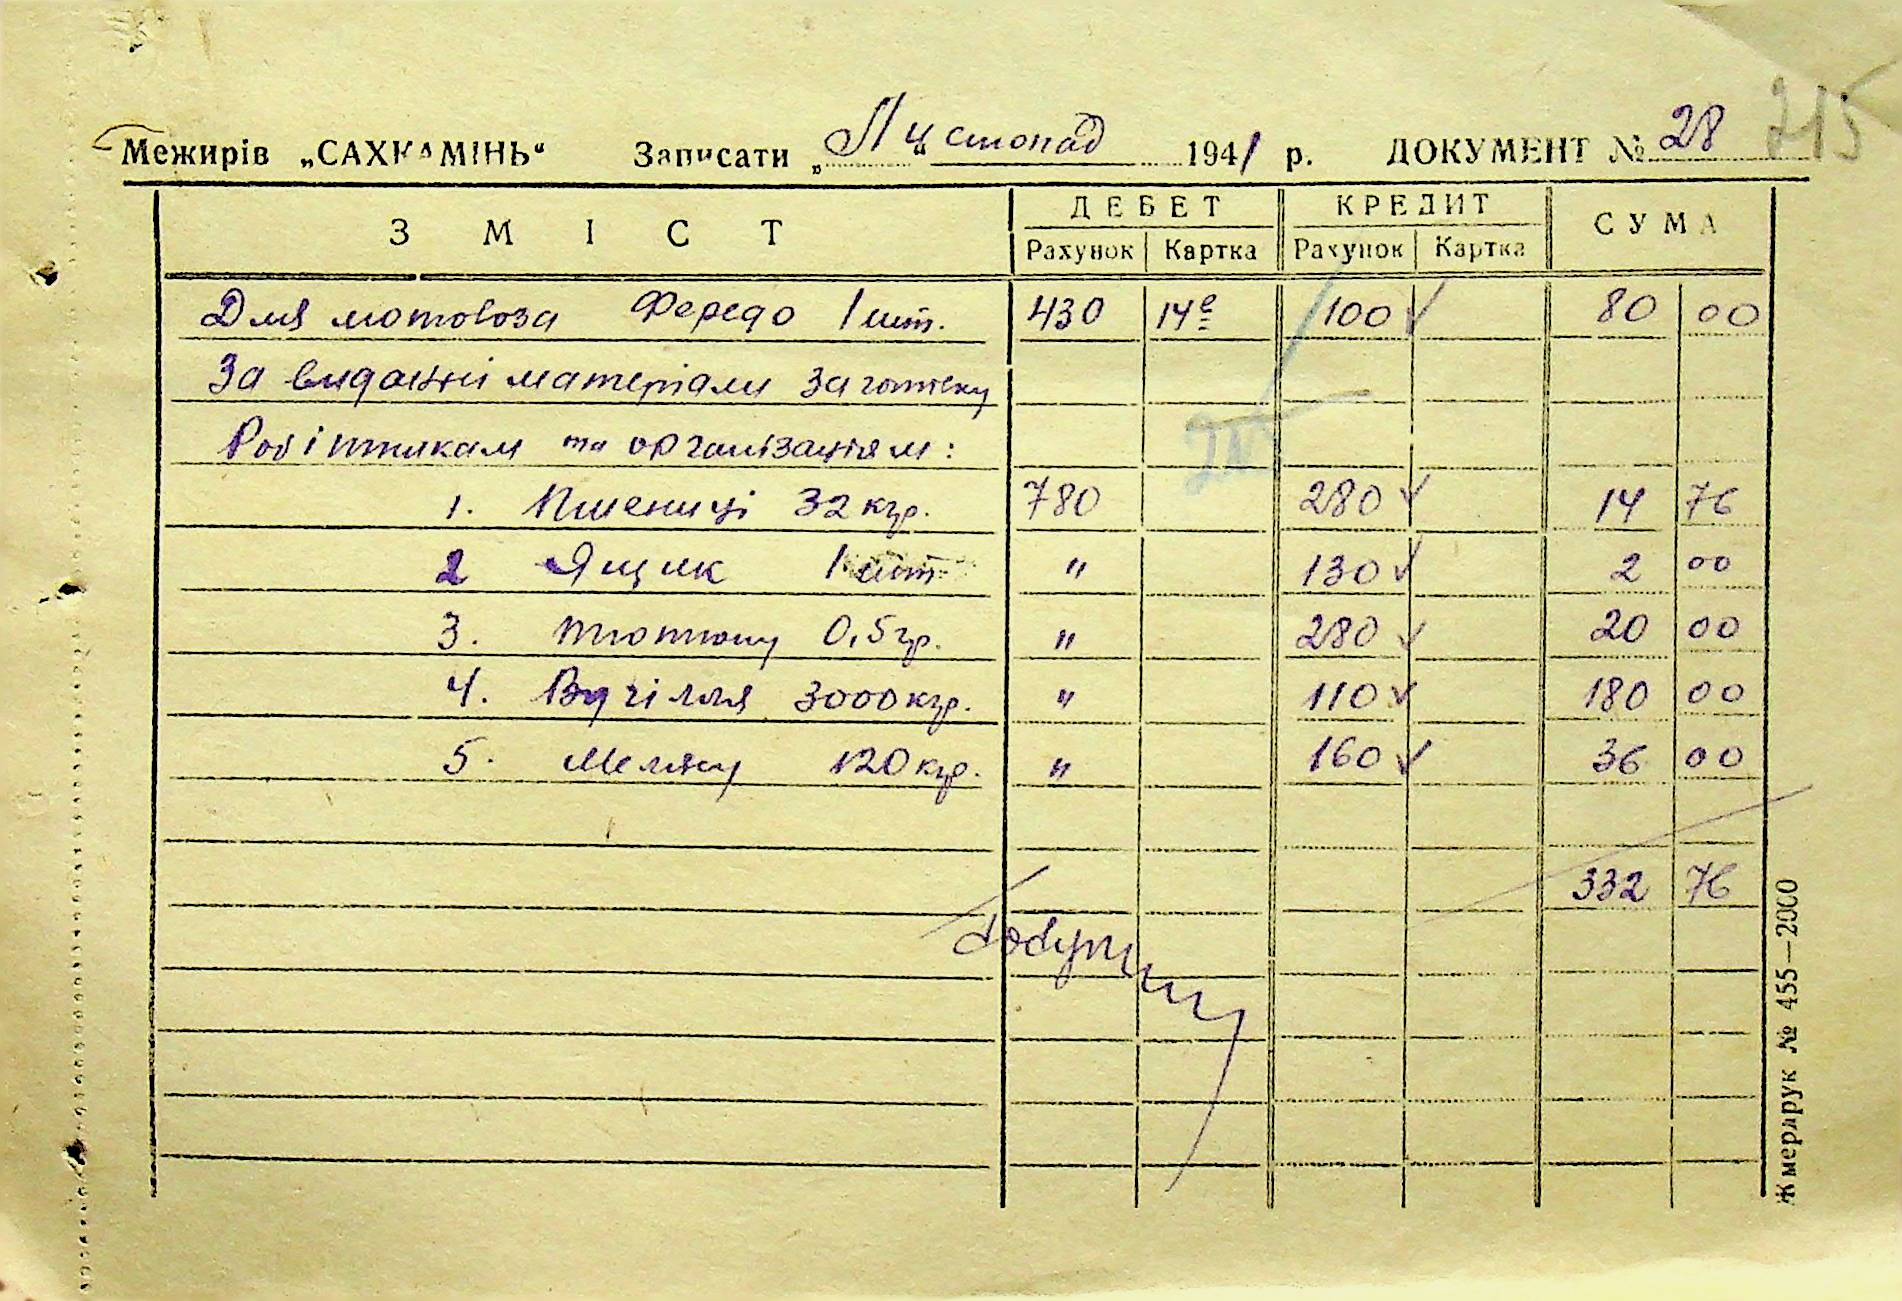 215
Межирів „САХКАМІНЬ“ Записати „Листопад“ 1941 р. ДОКУМЕНТ № 28
ЗМІСТ ДЕБЕТ КРЕДИТ СУМА
Рахунок Картка Рахунок Картка
Для мотовоза Фередо 1 шт. 430 14е 100 80 00
За видані матеріали за готівку
Робітникам та організаціям:
1. Пшениці 32 кгр. 780 280 14 76
2 Ящик 1 шт " 130 2 00
3. тютюну 0,5 гр. " 280 20 00
4. Вугілля 3000 кгр. " 110 180 00
5. Мелясу 120 кгр. " 160 36 00
332 76
Жмердрук № 455—2000